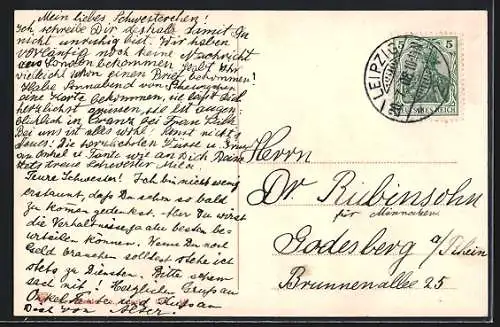 Mein liebes Schwesterchen!
Ich schreibe Dir deshalb damit Du
nicht unruhig bist. Wir haben
vorläufig noch keine Nachricht
aus London bekommen. Habt Ihr
vielleicht schon einen Brief bekommen?
Habe Sonnabend von
eine Karte bekommen, sie läßt Dich
herzlichst grüssen, sie ist augen-
blicklich in Cranz bei Frau
Bei uns ist alles wohl. Sonst nichts
Neues! Die herzlichsten Küsse u. Grüsse
an Onkel u. Tante wie an Dich Deine
stets treue Schwester
Teure Schwester! Ich bin nicht wenig
erstaunt, daß Du schon so bald
zu komen gedenkst. Aber Du wirst
die Verhältnisse ja am besten be-
urteilen können. Wenn Du noch
Geld brauchen solltest stehe ich
stets zu Diensten. Bitte
mit! Herzlichen Gruß an
Onkel Tante und Kuß an
Dich von
LEIPZIG
5
DEUTSCHES REICH
Herrn
Dr. Rubinsohn
für
Godesberg a/Rhein
Brunnenallee 25